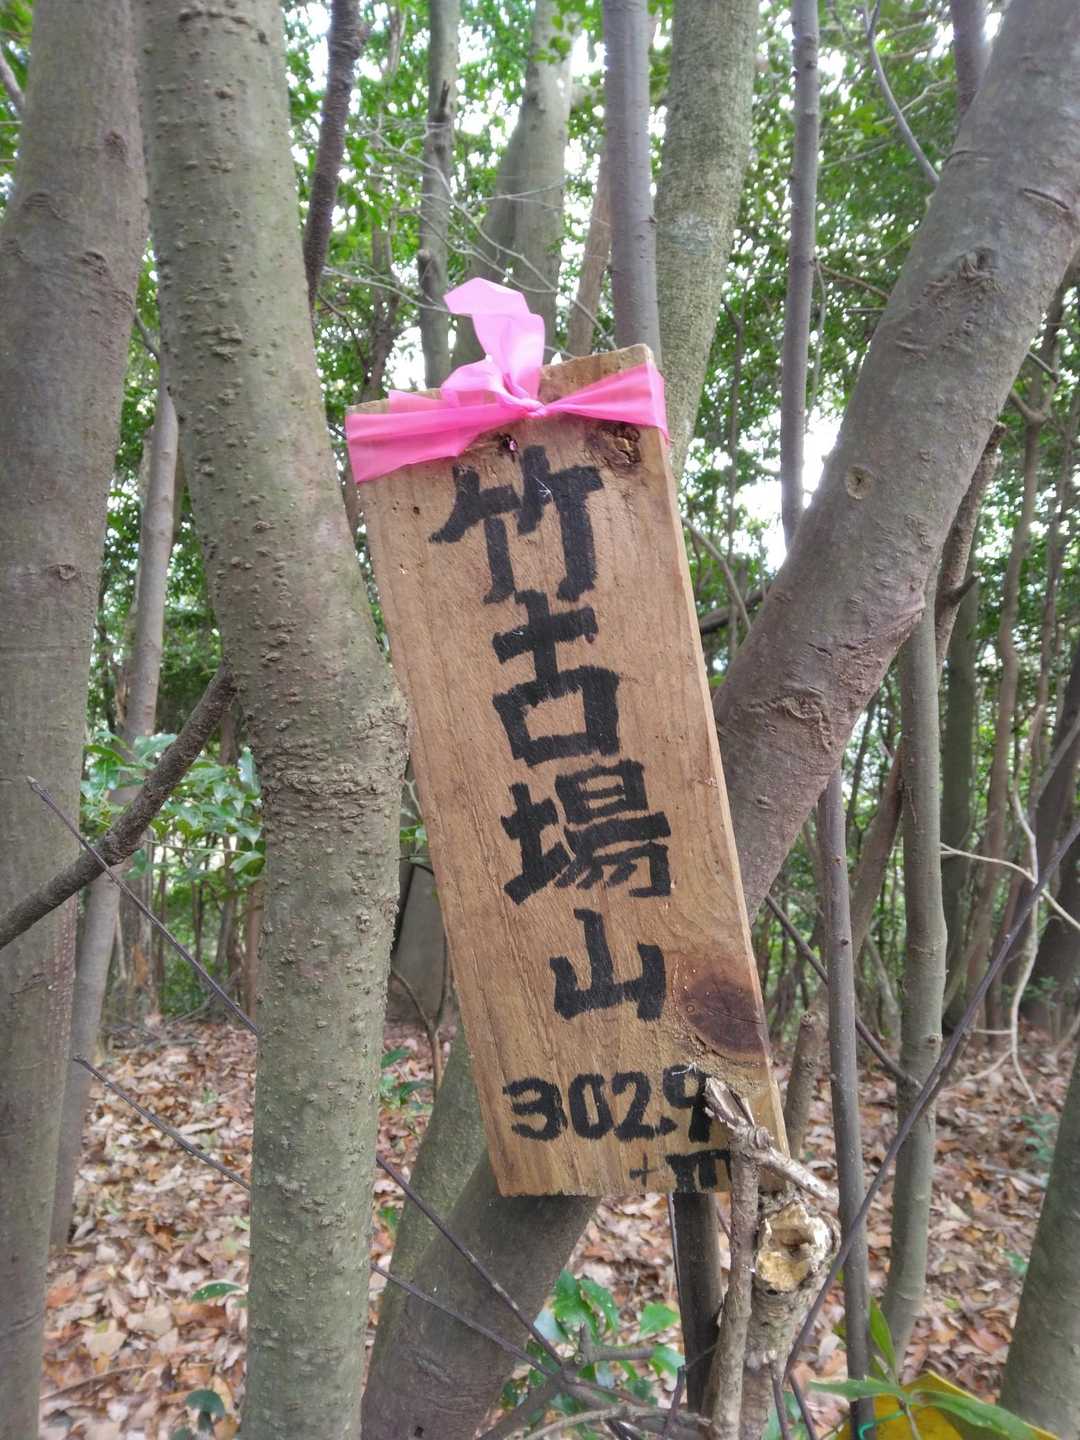 竹古場山
302.9
m